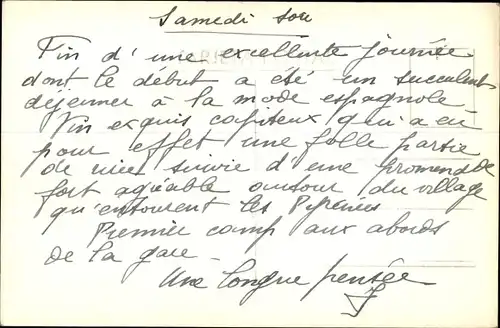 Samedi soir
Fin d'une excellente journée
dont le début a été un succulent
déjeuner à la mode espagnole
Vin exquis capiteux qui a eu
pour effet une folle partie
de rire suivie d'une promenade
fort agréable autour du village
qu'entourent les Pyrénées
Premier camp aux abords
de la gare -
Une longue pensée